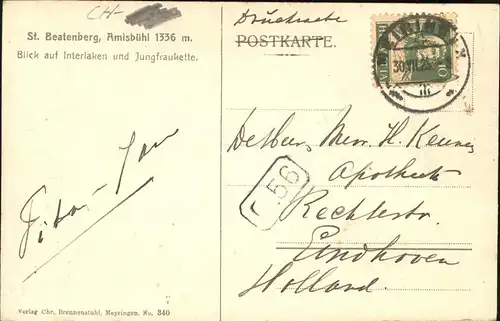 CH-
St. Beatenberg, Amisbühl 1336 m.
Blick auf Interlaken und Jungfraukette.
Drucksache
POSTKARTE.
HELVETIA
10
30.VII.
III
Mer. H.
Apotheek
56
Rechterstr.
Eindhoven
Holland.
Verlag Chr. Brennenstuhl, Meyringen. No. 340